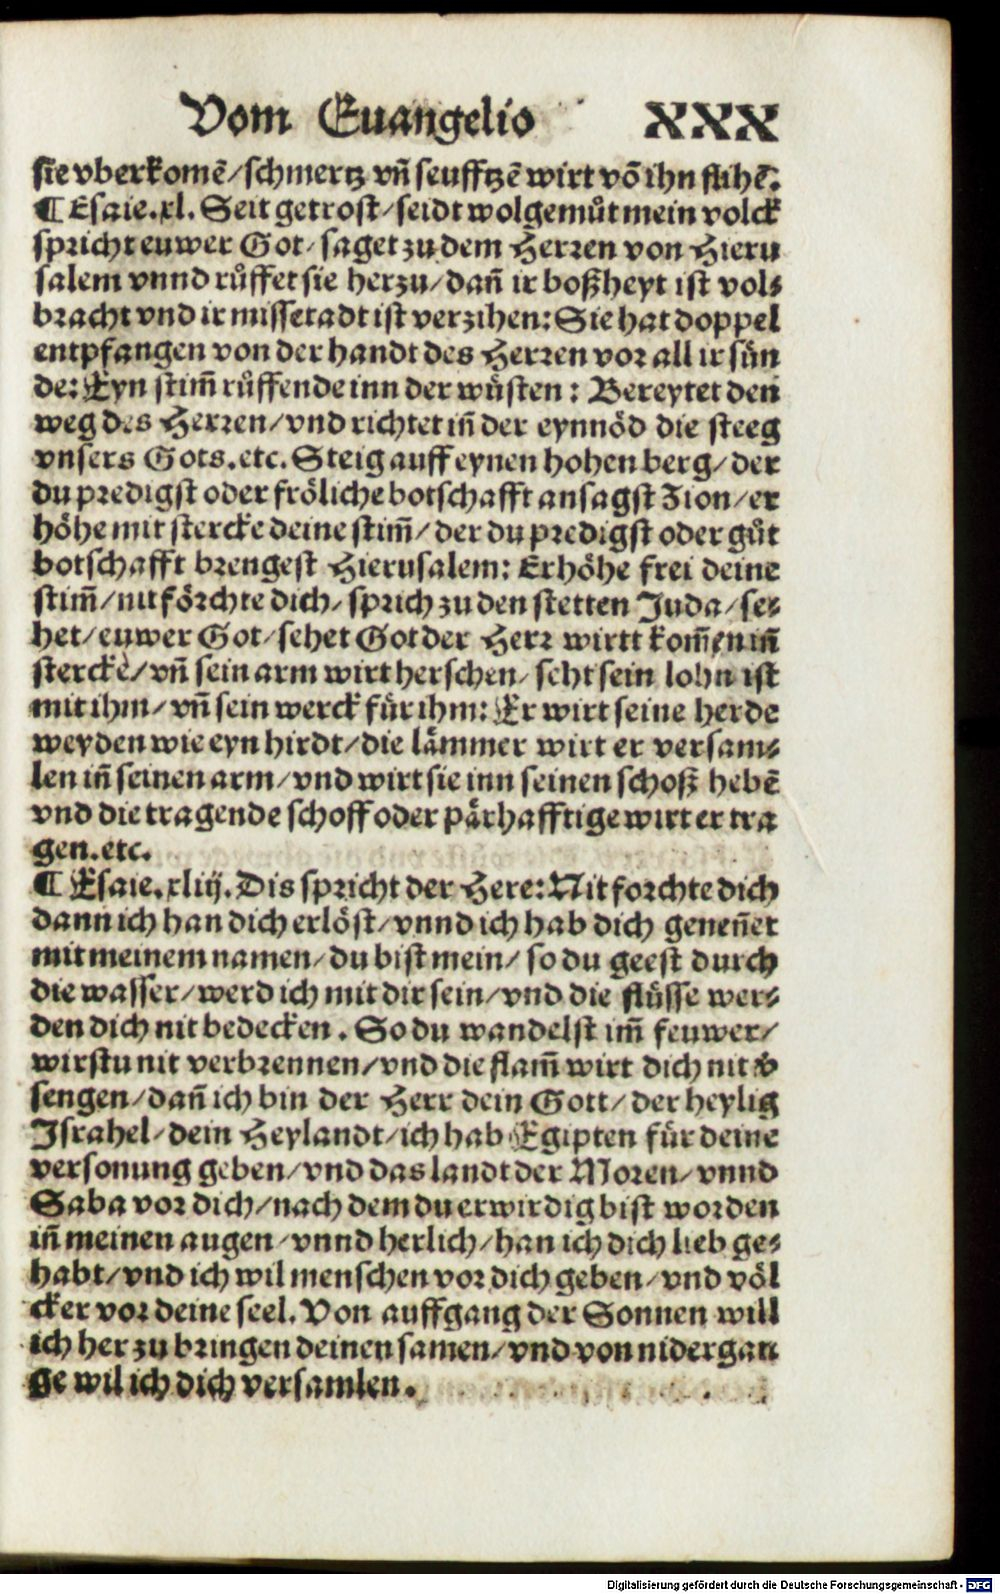 Vom Euangelio XXX
sie vberkomẽ/schmertz vñ seufftzẽ wirt võ ihn flihẽ.
¶ Esaie.xl. Seit getrost/seidt wolgemůt mein volck
spricht euwer Got/saget zu dem Herren von Hieru
salem vnnd růffet sie herzu/dañ ir boßheyt ist vol⸗
bracht vnd ir missetadt ist verzihen: Sie hat doppel
entpfangen von der handt des Herren vor all ir sün
de: Eyn stim̃ růffende inn der wůsten: Bereytet den
weg des Herren/vnd richtet iñ der eynnöd die steeg
vnsers Gots.etc. Steig auff eynen hohen berg/der
du predigst oder fröliche botschafft ansagst Zion/er
höhe mit stercke deine stim̃/der du predigst oder gůt
botschafft brengest Hierusalem: Erhöhe frei deine
stim̃/nit förchte dich/sprich zu den stetten Juda/se⸗
het/euwer Got/sehet Got der Herr wirtt kom̃en iñ
stercke/vñ sein arm wirt herschen/seht sein lohn ist
mit ihm/vñ sein werck für ihm: Er wirt seine herde
weyden wie eyn hirdt/die lämmer wirt er versam⸗
len iñ seinen arm/vnd wirt sie inn seinen schoß hebẽ
vnd die tragende schoff oder pärhafftige wirt er tra
gen.etc.
¶ Esaie.xliij. Dis spricht der Here: Nit forchte dich
dann ich han dich erlöst/vnnd ich hab dich geneñet
mit meinem namen/du bist mein/so du geest durch
die wasser/werd ich mit dir sein/vnd die flüsse wer⸗
den dich nit bedecken. So du wandelst im̃ feuwer/
wirstu nit verbrennen/vnd die flam̃ wirt dich nit v̄
sengen/dañ ich bin der Herr dein Gott/der heylig
Israhel/dein Heylandt/ich hab Egipten für deine
versonung geben/vnd das landt der Moren/vnnd
Saba vor dich/nach dem du erwirdig bist worden
iñ meinen augen/vnnd herlich/han ich dich lieb ge⸗
habt/vnd ich wil menschen vor dich geben/vnd völ
cker vor deine seel. Von auffgang der Sonnen will
ich her zu bringen deinen samen/vnd von nidergan
ge wil ich dich versamlen.
Digitalisierung gefördert durch die Deutsche Forschungsgemeinschaft - DFG